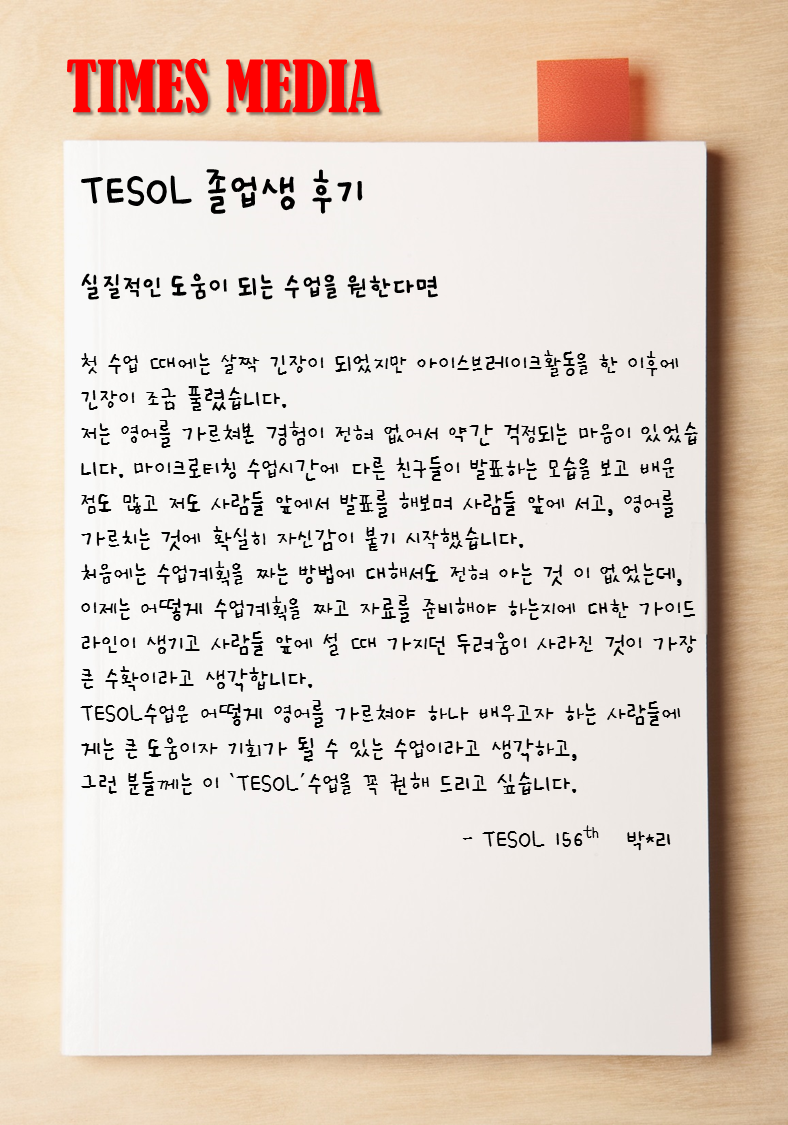 TIMES MEDIA
TESOL 졸업생 후기
실질적인 도움이 되는 수업을 원한다면
첫 수업 때에는 살짝 긴장이 되었지만 아이스브레이크활동을 한 이후에
긴장이 조금 풀렸습니다.
저는 영어를 가르쳐본 경험이 전혀 없어서 약간 걱정되는 마음이 있었습
니다. 마이크로티칭 수업시간에 다른 친구들이 발표하는 모습을 보고 배운
점도 많고 저도 사람들 앞에서 발표를 해보며 사람들 앞에 서고, 영어를
가르치는 것에 확실히 자신감이 붙기 시작했습니다.
처음에는 수업계획을 짜는 방법에 대해서도 전혀 아는 것 이 없었는데,
이제는 어떻게 수업계획을 짜고 자료를 준비해야 하는지에 대한 가이드
라인이 생기고 사람들 앞에 설 때 가지던 두려움이 사라진 것이 가장
큰 수확이라고 생각합니다.
TESOL수업은 어떻게 영어를 가르쳐야 하나 배우고자 하는 사람들에
게는 큰 도움이자 기회가 될 수 있는 수업이라고 생각하고,
그런 분들께는 이 ‘TESOL’수업을 꼭 권해 드리고 싶습니다.
- TESOL 156th 박*리